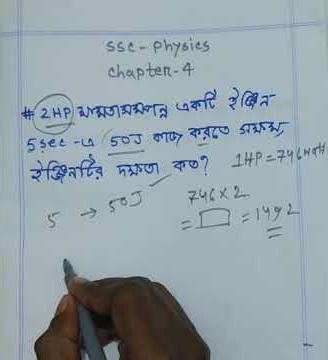 SSC - Physics
chapter-4
# 2HP ক্ষমতাসম্পন্ন একটি ইঞ্জিন
5sec-এ 50J কাজ করতে সক্ষম,
ইঞ্জিনটির দক্ষতা কত?
1HP=746watt
5 → 50J
746×2
= = 1492